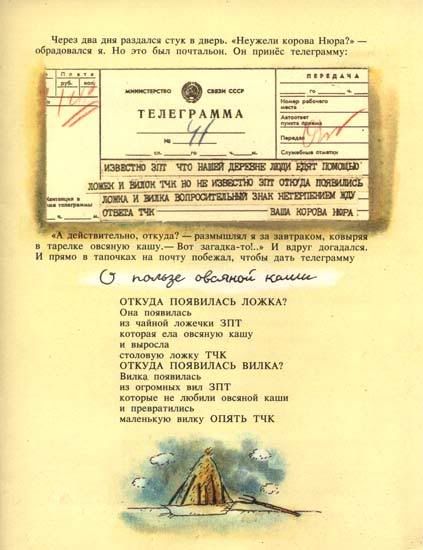 Через два дня раздался стук в дверь. «Неужели корова Нюра?» —
обрадовался я. Но это был почтальон. Он принёс телеграмму:
Плата
руб. коп.
МИНИСТЕРСТВО СВЯЗИ СССР
ТЕЛЕГРАММА
№
ПЕРЕДАЧА
го ч. м.
Номер рабочего
места
Автоответ
пункта приема
Передал
Служебные отметки
ИЗВЕСТНО ЗПТ ЧТО НАШЕЙ ДЕРЕВНЕ ЛЮДИ ЕДЯТ ПОМОЩЬЮ
ЛОЖЕК И ВИЛОК ТЧК НО НЕ ИЗВЕСТНО ЗПТ ОТКУДА ПОЯВИЛИСЬ
ЛОЖКА И ВИЛКА ВОПРОСИТЕЛЬНЫЙ ЗНАК НЕТЕРПЕНИЕМ ЖДУ
ОТВЕТА ТЧК ВАША КОРОВА НЮРА
«А действительно, откуда? — размышлял я за завтраком, ковыряя
в тарелке овсяную кашу.— Вот загадка-то!..» И вдруг догадался.
И прямо в тапочках на почту побежал, чтобы дать телеграмму
О пользе овсяной каши
ОТКУДА ПОЯВИЛАСЬ ЛОЖКА?
Она появилась
из чайной ложечки ЗПТ
которая ела овсяную кашу
и выросла
столовую ложку ТЧК
ОТКУДА ПОЯВИЛАСЬ ВИЛКА?
Вилка появилась
из огромных вил ЗПТ
которые не любили овсяной каши
и превратились
маленькую вилку ОПЯТЬ ТЧК